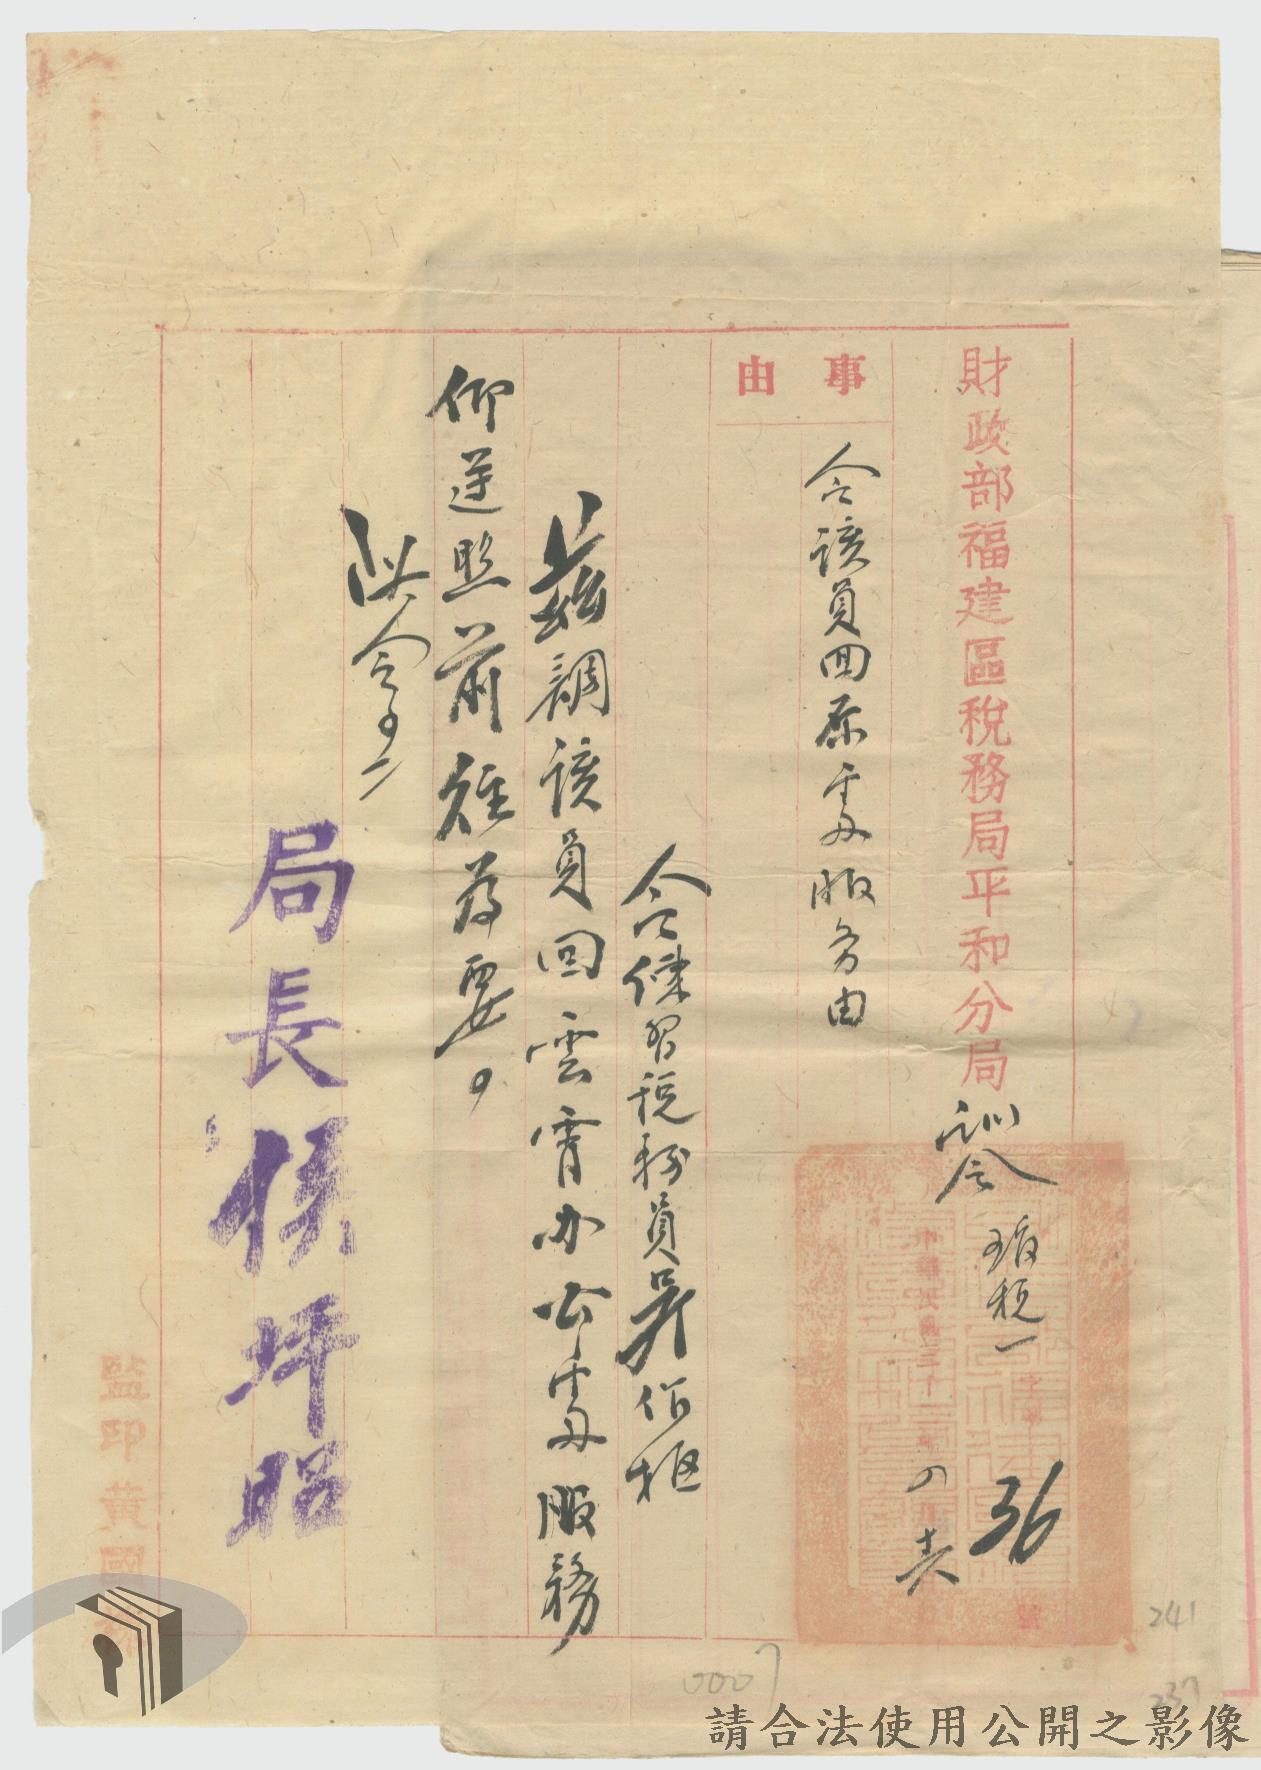 財政部福建區稅務局平和分局訓令
稅一字第36號
中華民國三十二年
事由
令該員回原處服务由
令練習稅務員吳伯樞
茲調該員回雲霄办公處服務
仰逕照前往为要。
此令。
局長
坪昭
監印黃國
0007
241
237
請合法使用公開之影像